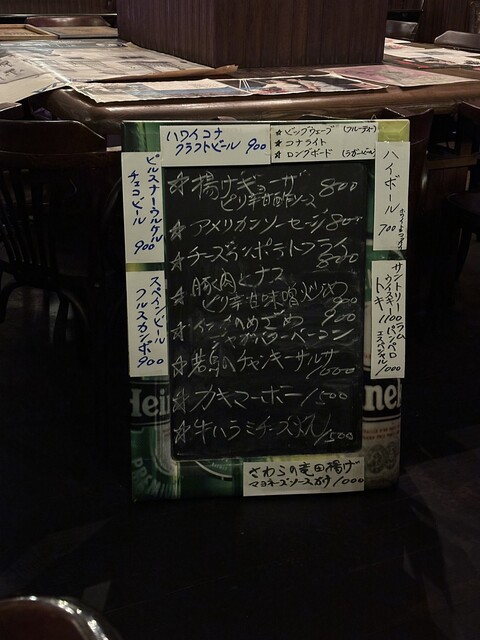 ハワイコナ
クラフトビール 900
★ ビッグウェーブ (フルーティー)
★ コナライト
★ ロングボード (ラガービール)
ピルスナーウルケル
チェコビール 900
スペインビール
フルスカンポ 900
ハイボール
700
サントリー
ウイスキー
トキ 1100
ラム
パンペロ
エスペシャル 1000
☆ 揚げギョーザ
ピリ辛甘酢ソース 800
☆ アメリカンソーセージ 800
☆ チーズランポテトフライ
800
☆ 豚肉とナス
ピリ辛甘味噌炒め
900
のめざめ 900
ジャガバターベーコン
☆ 若鳥のチャンキーサルサ
1000
☆ カキマーボー 1500
☆ 牛ハラミチーズ焼 1500
さわらの竜田揚げ
マヨネーズソースがけ 1000
Hei
ne
PREMIUM